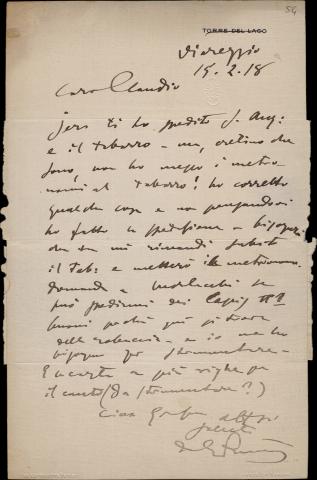 54
TORRE DEL LAGO
Viareggio
15.2.18
Caro Claudio
Jeri ti ho spedito S. Ang:
e il Tabarro – ma, cretino che
sono, non ho messo i metro-
nomi al Tabarro! ho corretto
qualche cosa e non pensandoci
ho fatto la spedizione – bisogna
che tu mi rimandi subito
il Tab: e metterò il metronomo.
Domanda a se
può spedirmi dei lapis Nº1
buoni perchè qui si trova
delle e io ne ho
bisogno per strumentare –
E carta a più righe per
il canto (da strumentare?)
Ciao
saluti